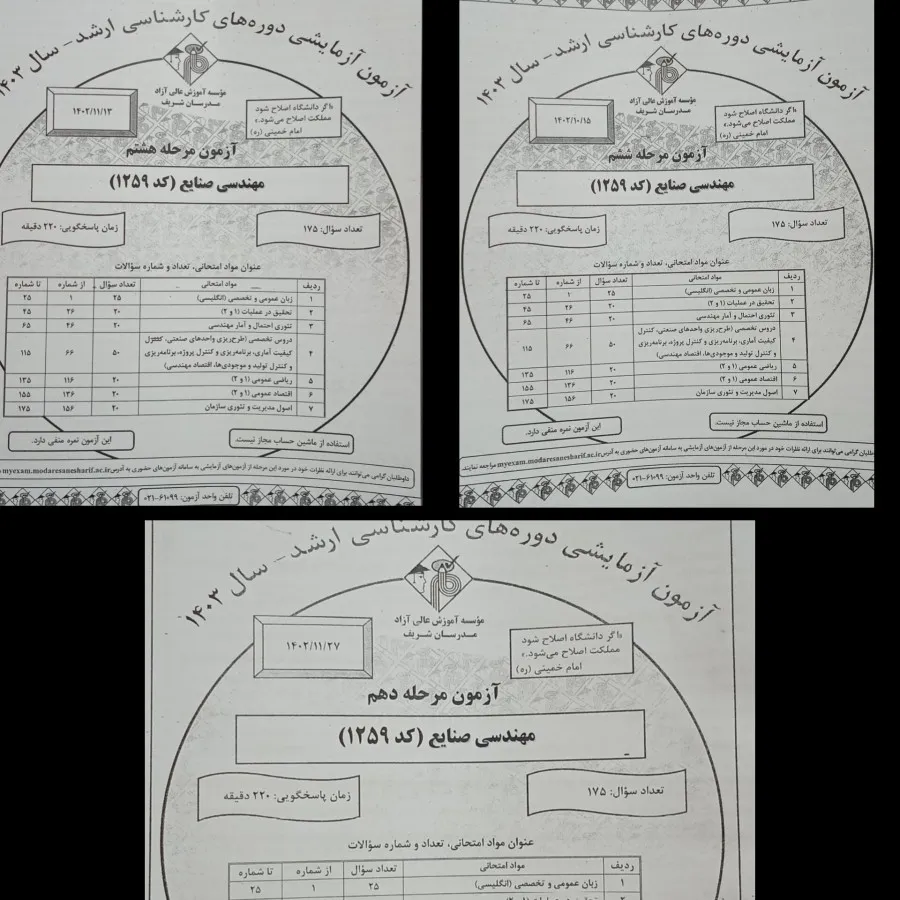 آزمون آزمایشی دوره‌های کارشناسی ارشد - سال ۱۴۰۳
مؤسسه آموزش عالی آزاد
مدرسان شریف
«اگر دانشگاه اصلاح شود
مملکت اصلاح می‌شود.»
امام خمینی (ره)
۱۴۰۲/۱۱/۱۳
آزمون مرحله هشتم
مهندسی صنایع (کد ۱۲۵۹)
تعداد سؤال: ۱۷۵
زمان پاسخگویی: ۲۲۰ دقیقه
عنوان مواد امتحانی، تعداد و شماره سؤالات
ردیف مواد امتحانی تعداد سؤال از شماره تا شماره
۱ زبان عمومی و تخصصی (انگلیسی) ۲۵ ۱ ۲۵
۲ تحقیق در عملیات (۱ و ۲) ۲۰ ۲۶ ۴۵
۳ تئوری احتمال و آمار مهندسی ۲۰ ۴۶ ۶۵
۴ دروس تخصصی (طرح‌ریزی واحدهای صنعتی، کنترل
کیفیت آماری، برنامه‌ریزی و کنترل پروژه، برنامه‌ریزی
و کنترل تولید و موجودی‌ها، اقتصاد مهندسی) ۵۰ ۶۶ ۱۱۵
۵ ریاضی عمومی (۱ و ۲) ۲۰ ۱۱۶ ۱۳۵
۶ اقتصاد عمومی (۱ و ۲) ۲۰ ۱۳۶ ۱۵۵
۷ اصول مدیریت و تئوری سازمان ۲۰ ۱۵۶ ۱۷۵
استفاده از ماشین حساب مجاز نیست.
این آزمون نمره منفی دارد.
داوطلبان گرامی می‌توانند برای ارائه نظرات خود در مورد این مرحله از آزمون‌های آزمایشی به سامانه آزمون‌های حضوری به آدرس myexam.modaresanesharif.ac.ir
تلفن واحد آزمون: ۶۱۰۹۹-۰۲۱
آزمون آزمایشی دوره‌های کارشناسی ارشد - سال ۱۴۰۳
مؤسسه آموزش عالی آزاد
مدرسان شریف
«اگر دانشگاه اصلاح شود
مملکت اصلاح می‌شود.»
امام خمینی (ره)
۱۴۰۲/۱۰/۱۵
آزمون مرحله ششم
مهندسی صنایع (کد ۱۲۵۹)
تعداد سؤال: ۱۷۵
زمان پاسخگویی: ۲۲۰ دقیقه
عنوان مواد امتحانی، تعداد و شماره سؤالات
ردیف مواد امتحانی تعداد سؤال از شماره تا شماره
۱ زبان عمومی و تخصصی (انگلیسی) ۲۵ ۱ ۲۵
۲ تحقیق در عملیات (۱ و ۲) ۲۰ ۲۶ ۴۵
۳ تئوری احتمال و آمار مهندسی ۲۰ ۴۶ ۶۵
۴ دروس تخصصی (طرح‌ریزی واحدهای صنعتی، کنترل
کیفیت آماری، برنامه‌ریزی و کنترل پروژه، برنامه‌ریزی
و کنترل تولید و موجودی‌ها، اقتصاد مهندسی) ۵۰ ۶۶ ۱۱۵
۵ ریاضی عمومی (۱ و ۲) ۲۰ ۱۱۶ ۱۳۵
۶ اقتصاد عمومی (۱ و ۲) ۲۰ ۱۳۶ ۱۵۵
۷ اصول مدیریت و تئوری سازمان ۲۰ ۱۵۶ ۱۷۵
استفاده از ماشین حساب مجاز نیست.
این آزمون نمره منفی دارد.
گرامی می‌توانند برای ارائه نظرات خود در مورد این مرحله از آزمون‌های آزمایشی به سامانه آزمون‌های حضوری به آدرس myexam.modaresanesharif.ac.ir مراجعه نمایند.
تلفن واحد آزمون: ۶۱۰۹۹-۰۲۱
آزمون آزمایشی دوره‌های کارشناسی ارشد - سال ۱۴۰۳
مؤسسه آموزش عالی آزاد
مدرسان شریف
«اگر دانشگاه اصلاح شود
مملکت اصلاح می‌شود.»
امام خمینی (ره)
۱۴۰۲/۱۱/۲۷
آزمون مرحله دهم
مهندسی صنایع (کد ۱۲۵۹)
تعداد سؤال: ۱۷۵
زمان پاسخگویی: ۲۲۰ دقیقه
عنوان مواد امتحانی، تعداد و شماره سؤالات
ردیف مواد امتحانی تعداد سؤال از شماره تا شماره
۱ زبان عمومی و تخصصی (انگلیسی) ۲۵ ۱ ۲۵